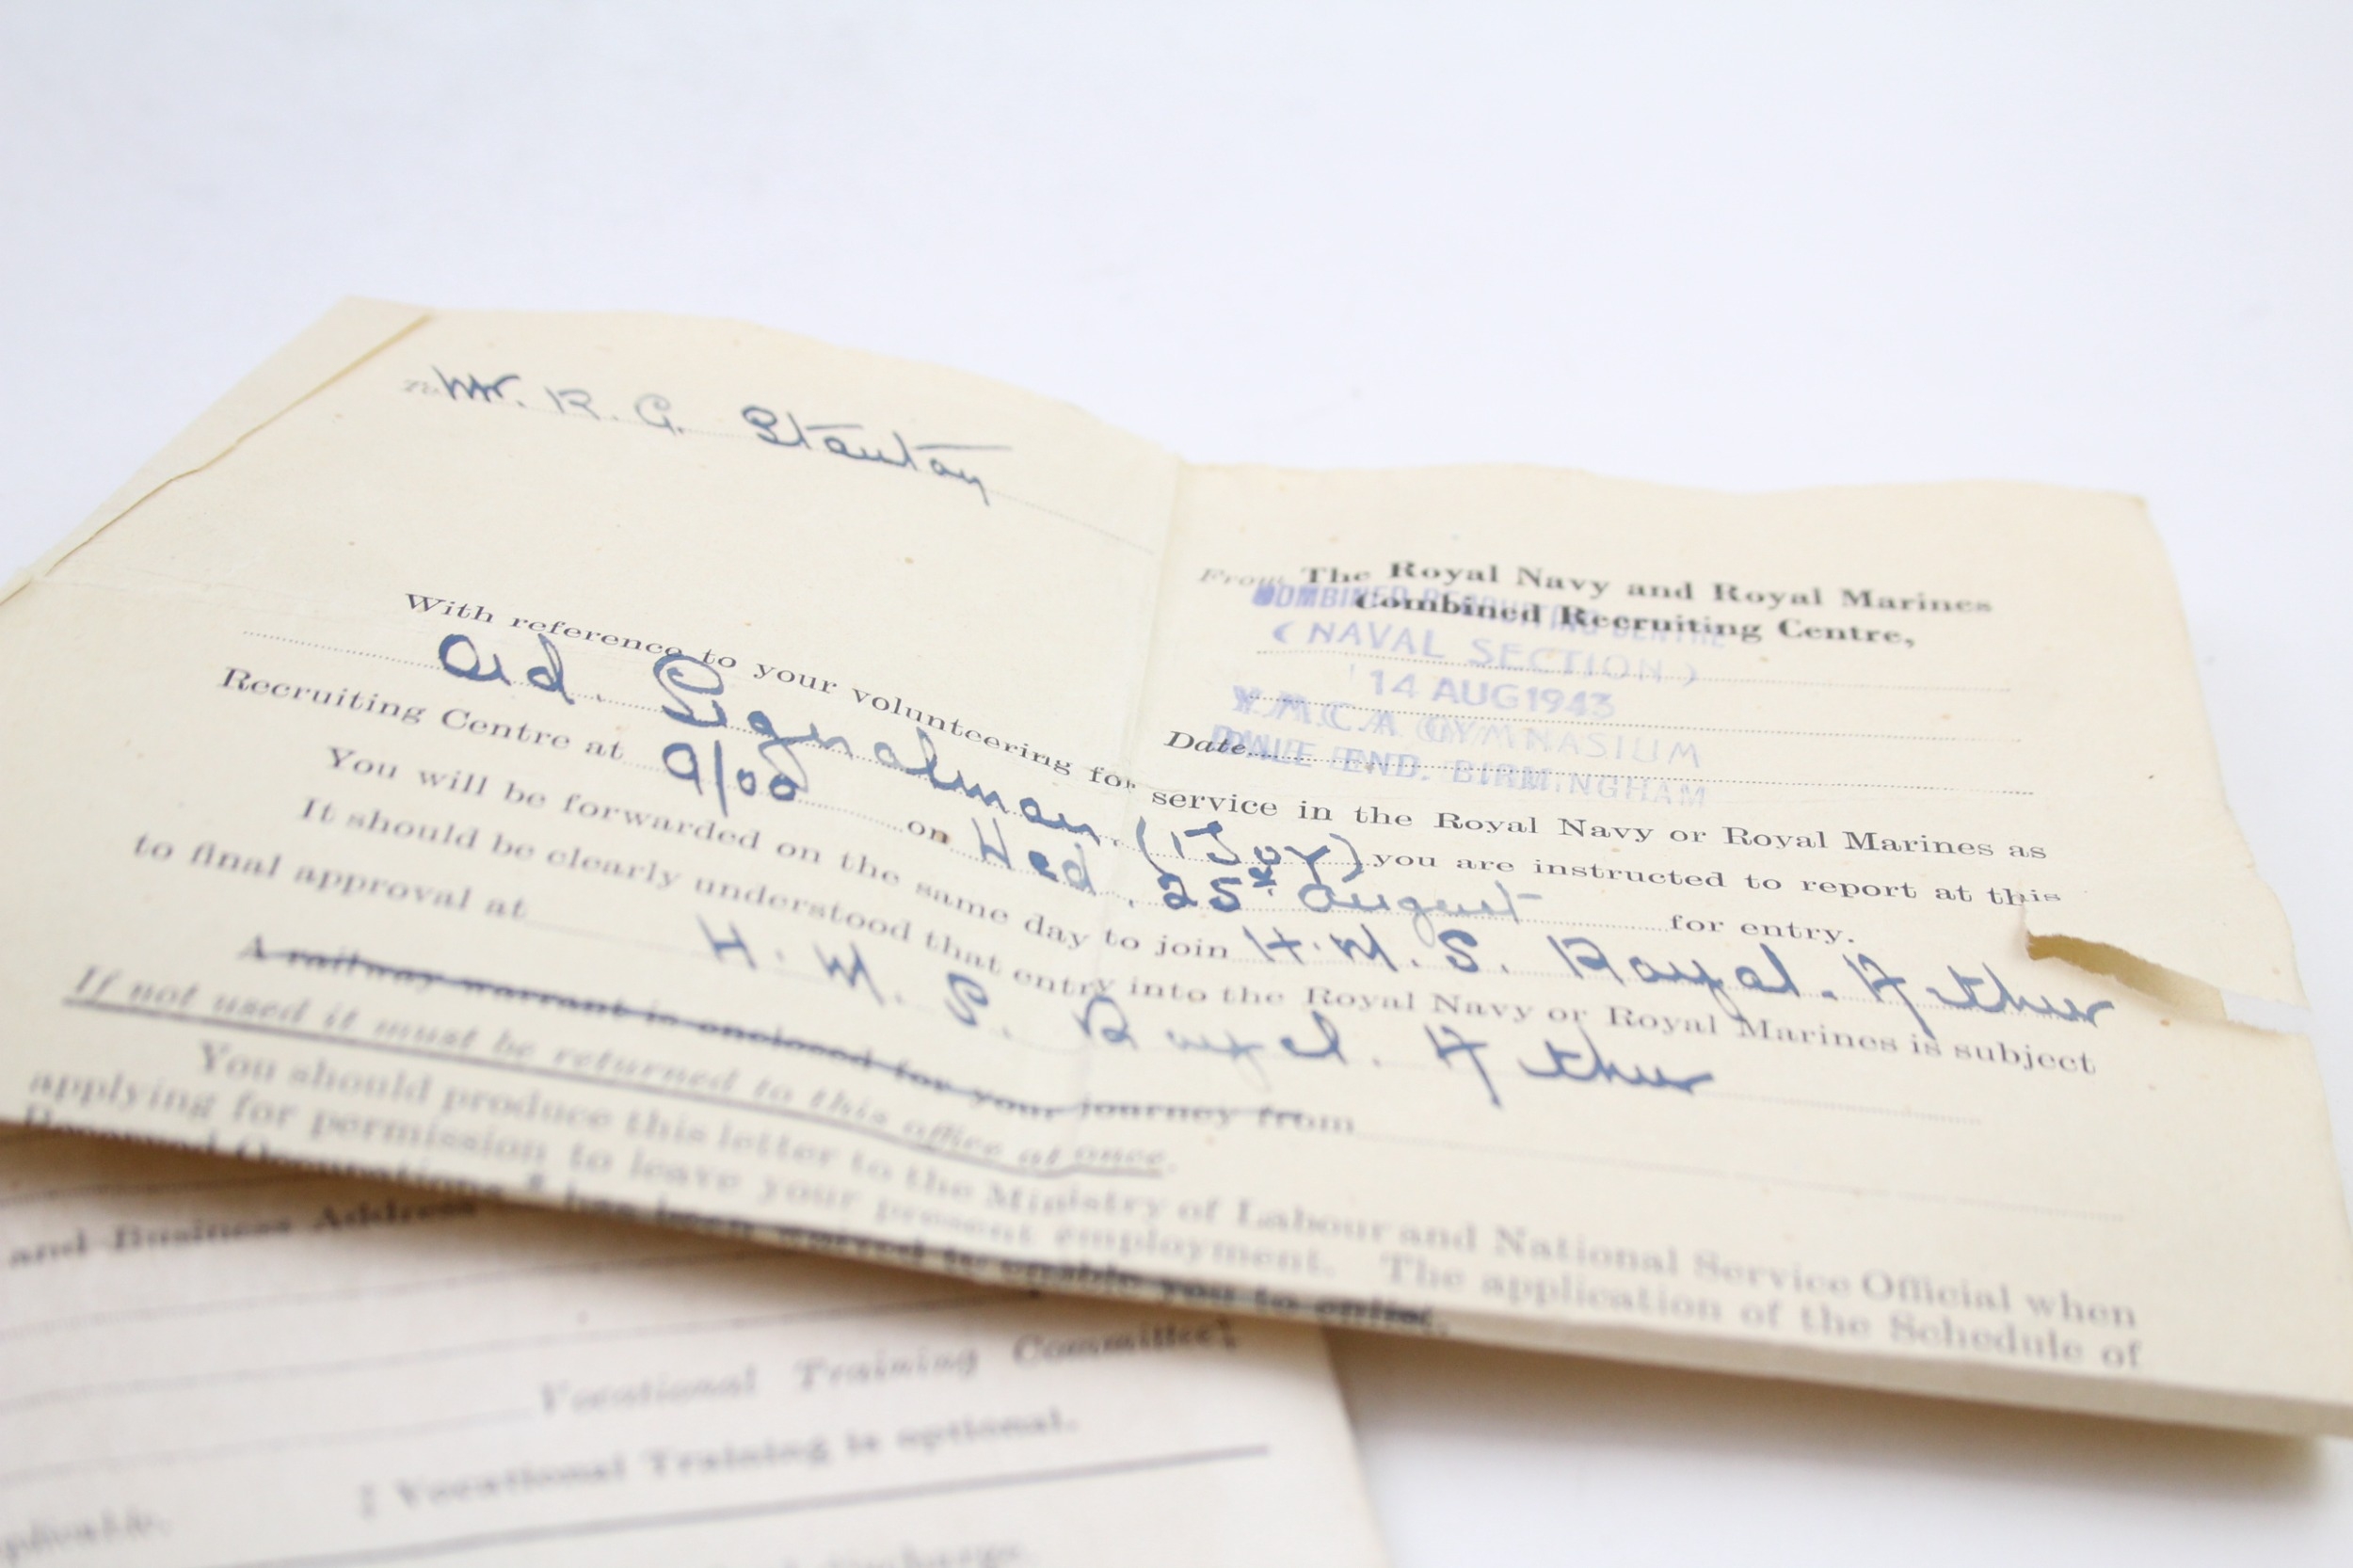 To Mr. R. G.
From The Royal Navy and Royal Marines
Combined Recruiting Centre,
COMBINED RECRUITING CENTRE
(NAVAL SECTION)
14 AUG 1943
Y.M.C.A. GYMNASIUM
Date
DALE END. BIRMINGHAM
With reference to your volunteering for service in the Royal Navy or Royal Marines as
Ord. Signalman. you are instructed to report at this
Recruiting Centre at 9/00 on Wed. 25th August for entry.
You will be forwarded on the same day to join H.M.S. Royal. Arthur
It should be clearly understood that entry into the Royal Navy or Royal Marines is subject
to final approval at H.M.S. Royal. Arthur
A railway warrant is enclosed for your journey from
If not used it must be returned to this office at once.
You should produce this letter to the Ministry of Labour and National Service Official when
applying for permission to leave your present employment. The application of the Schedule of
Reserved Occupations has been waived to enable you to enlist.
and Business Address
Vocational Training Committee‡
‡ Vocational Training is optional.
discharge.